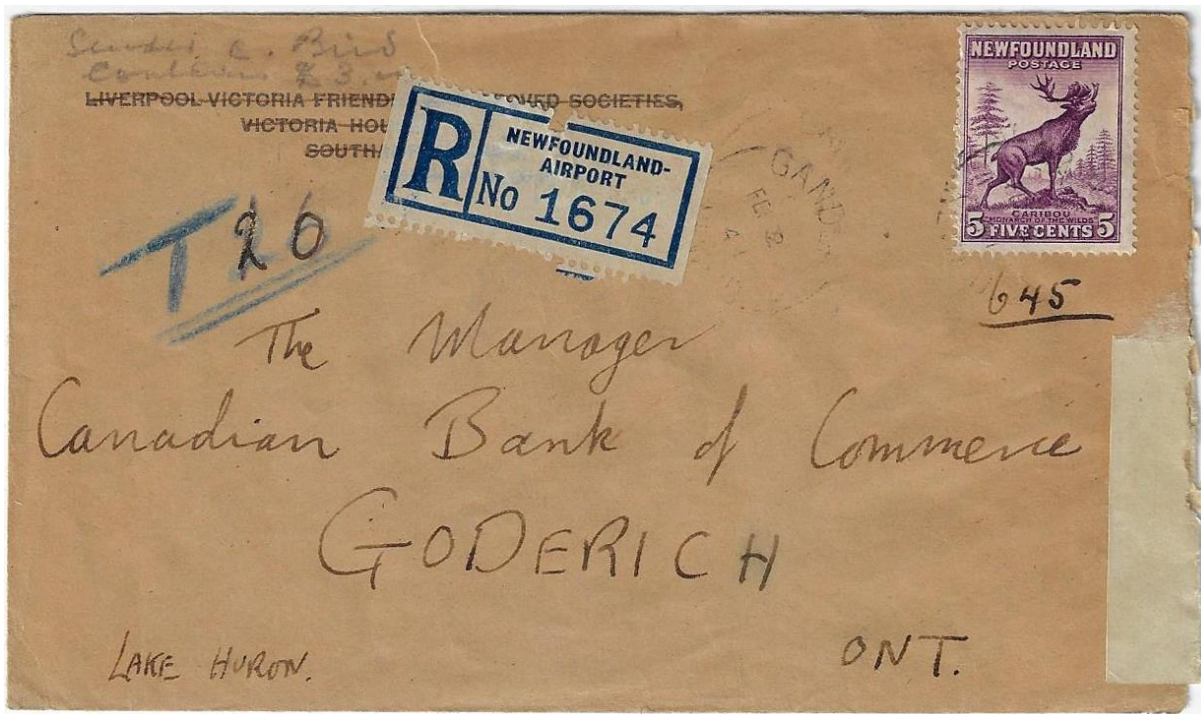 Sender C. Bird
Contains £3.
LIVERPOOL VICTORIA FRIENDLY SOCIETIES,
VICTORIA
SOUTH
R
NEWFOUNDLAND-
AIRPORT
No 1674
GANDER
FE 2
4
NEWFOUNDLAND
POSTAGE
CARIBOU
"MONARCH OF THE WILDS"
5 FIVE CENTS 5
T 26
645
The Manager
Canadian Bank of Commerce
GODERICH
LAKE HURON.
ONT.